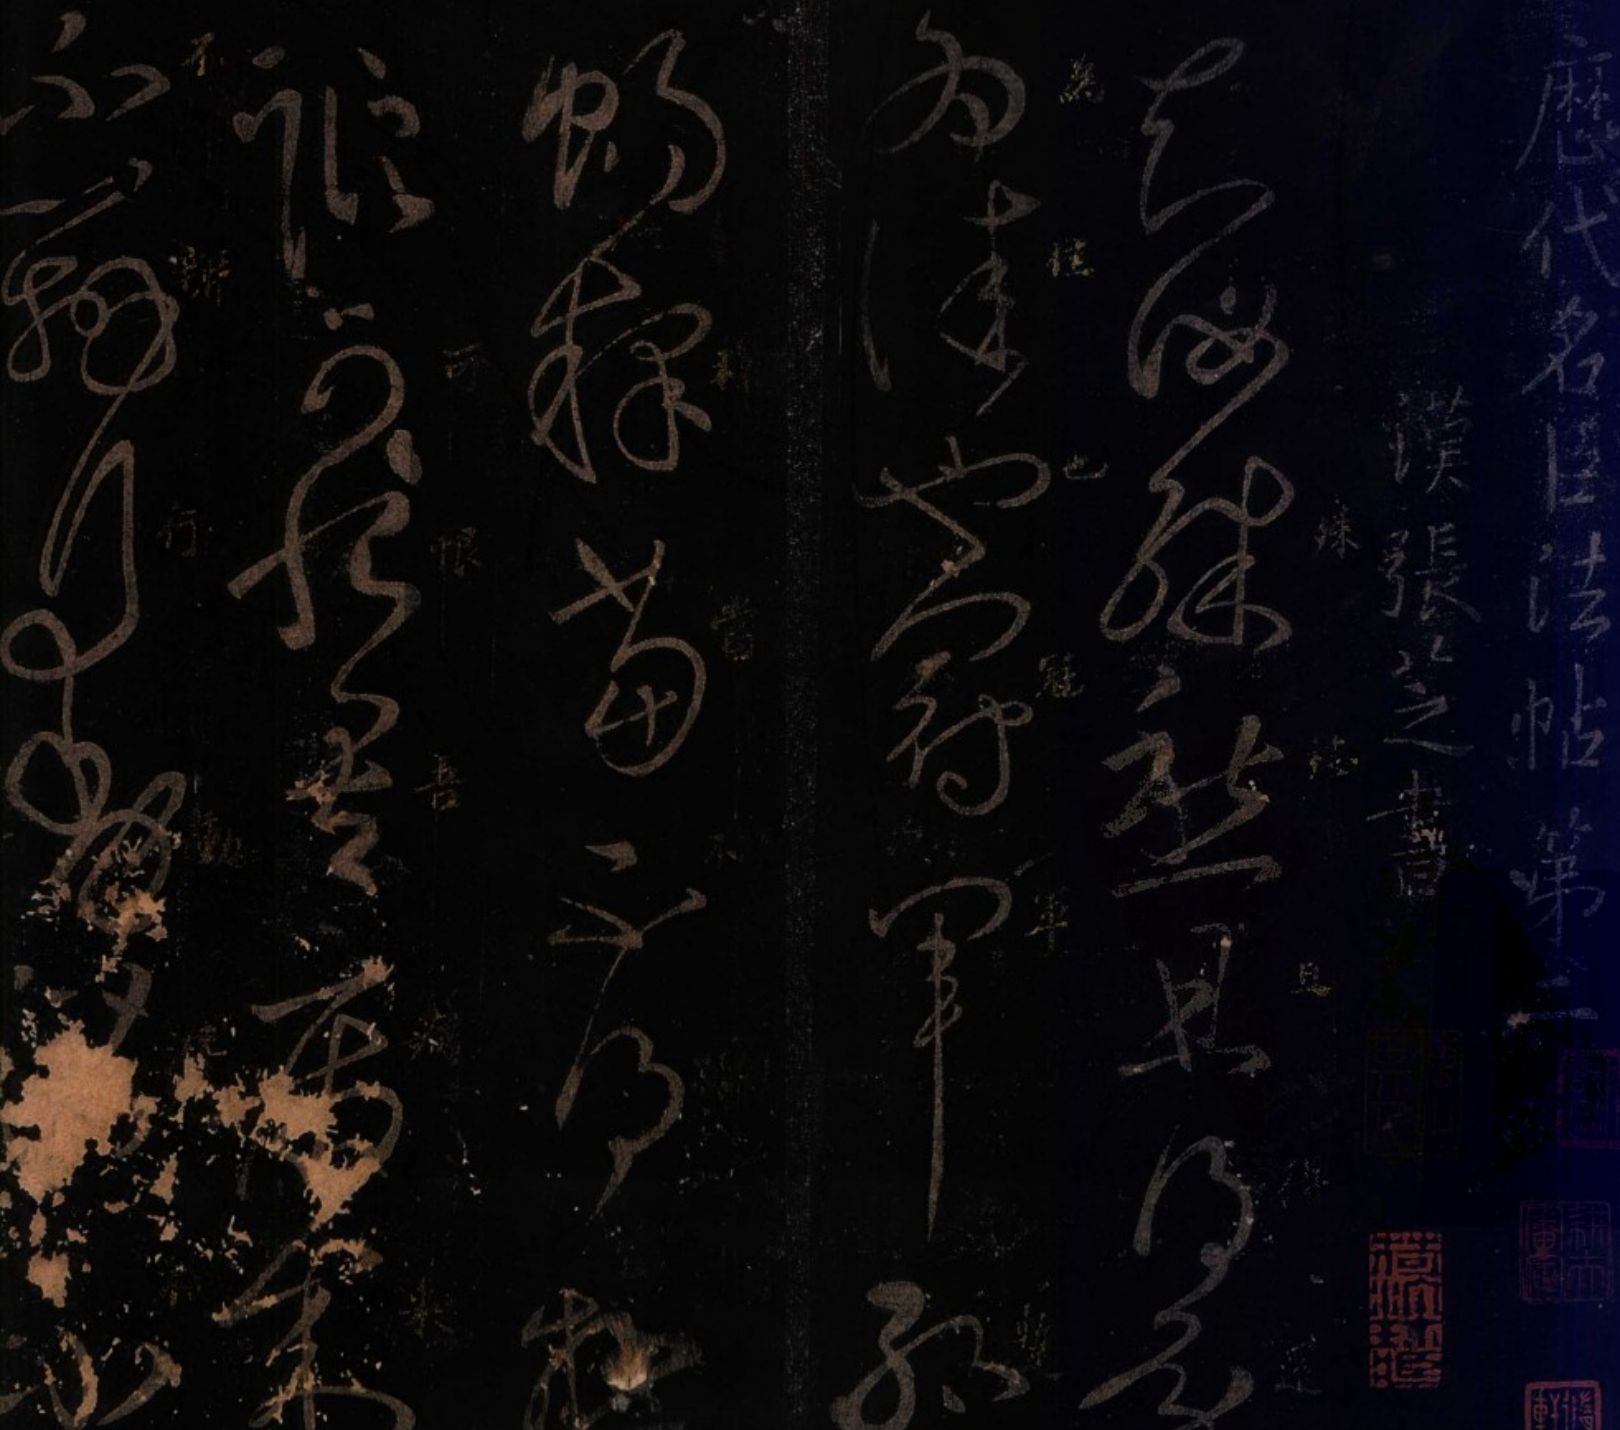 歷代名臣法帖第二
漢張芝書
知汝殊愁且得還
為佳也冠軍暫
暢釋當不得極
蹤可恨吾病來
不辦行動